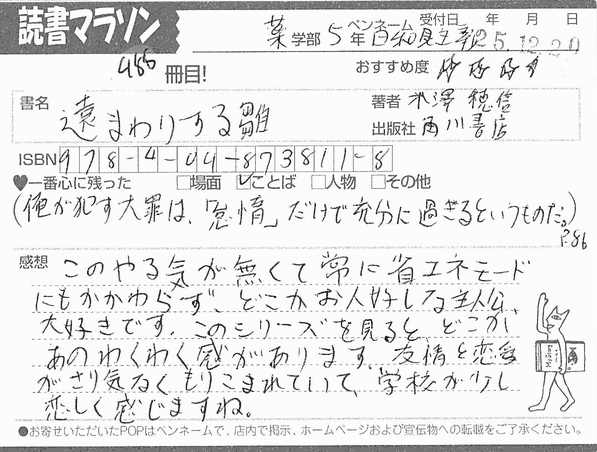 読書マラソン
488冊目!
薬学部 5年 ペンネーム 受付日 年 月 日
25.12.20
おすすめ度
書名 遠まわりする雛
著者 米澤穂信
出版社 角川書店
ISBN 978-4-04-873811-8
♥一番心に残った □場面 ☑ことば □人物 □その他
(俺が犯す大罪は、「怠惰」だけで充分に過ぎるというものだ。
P.86
感想 このやる気が無くて常に省エネモード
にもかかわらず、どこかお人好しな主人公、
大好きです。このシリーズを見ると、どこか
あのわくわく感があります。友情と恋愛
がさり気なくもりこまれていて、学校が少し
恋しく感じますね。
●お寄せいただいたPOPはペンネームで、店内で掲示、ホームページおよび宣伝物への転載をご了承ください。